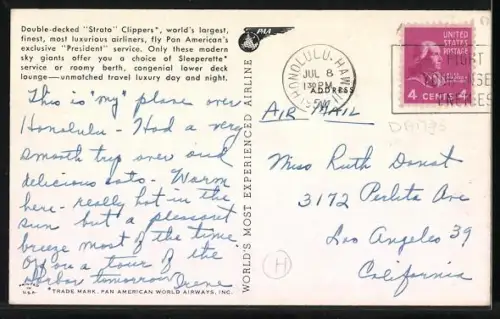 Double-decked "Strato" Clippers*, world's largest,
finest, most luxurious airliners, fly Pan American's
exclusive "President" service. Only these modern
sky giants offer you a choice of Sleeperette*
service or roomy berth, congenial lower deck
lounge—unmatched travel luxury day and night.
This is "my" plane over
Honolulu - Had a very
smooth trip over and
delicious eats - Warm
here - really hot in the
sun but a pleasant
breeze most of the time
Off on a tour of the
harbor tomorrow Irene
U.S.A.
*TRADE MARK, PAN AMERICAN WORLD AIRWAYS, INC.
WORLD'S MOST EXPERIENCED AIRLINE
PAA
HONOLULU, HAWAII
JUL 8
1 PM
ADDRESS
AIR MAIL
UNITED STATES
POSTAGE
4 CENTS 4
FIGHT
Miss Ruth Donat
3172 Perlita Ave
Los Angeles 39
California
H